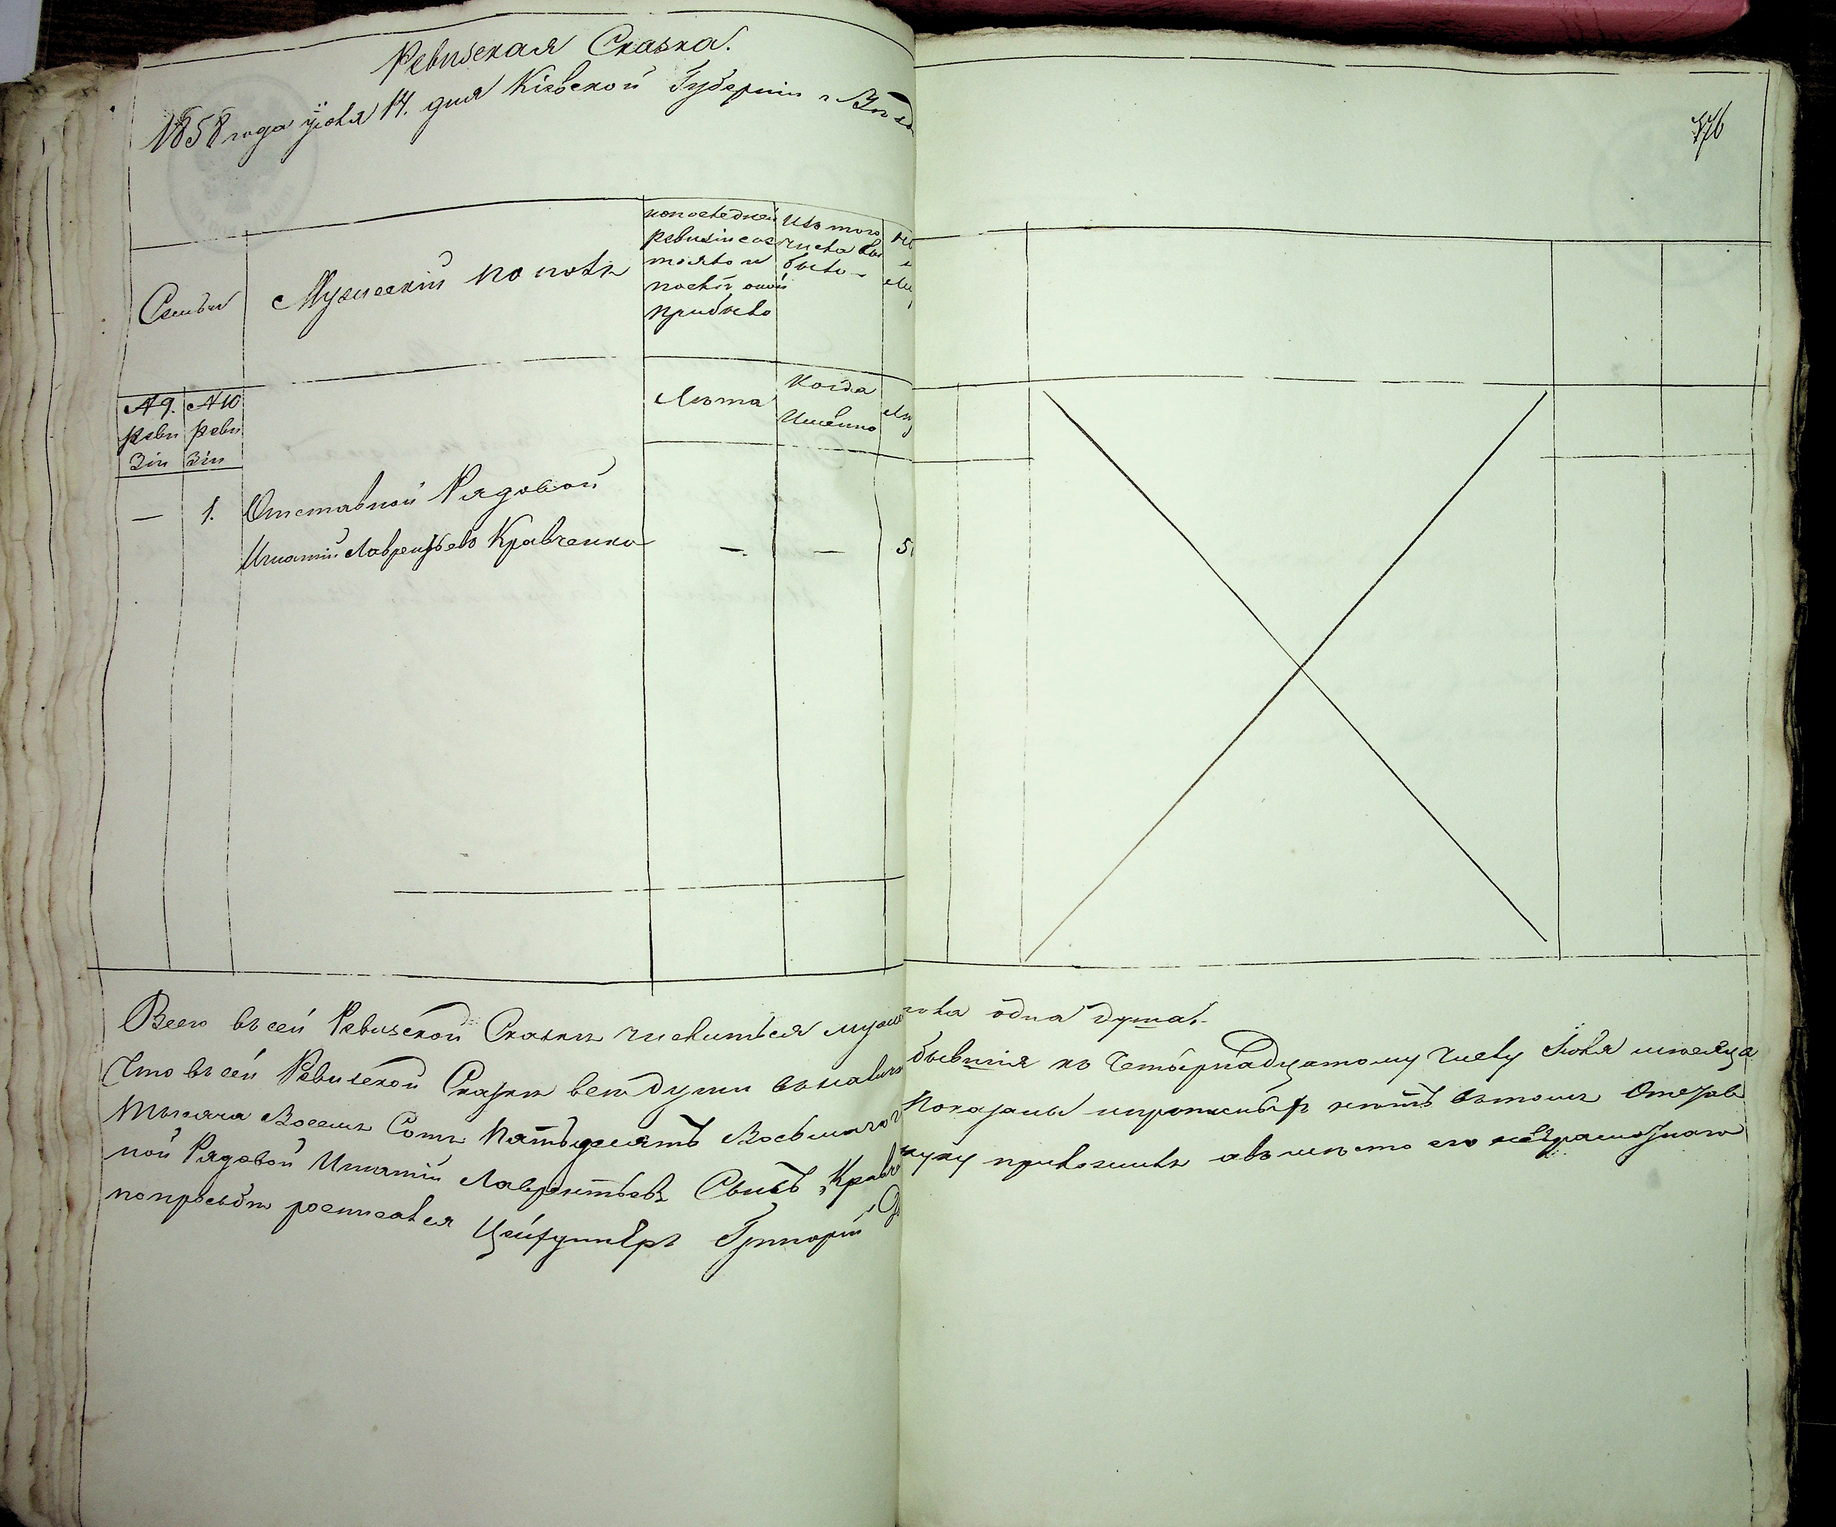 Ревизская Сказка.
1858 года Іюля 14. дня Кіевской Губерніи
Семьи
Мужескій полъ
по последней ревизіи состояло и после оной прибыло
Изъ того числа выбыло
№ 9. ревизіи
№ 10 ревизіи
Лѣта
Когда Именно
— 1. Отставной Рядовой
Игнатій Лаврентьевъ Кравченко — —
Всего въ сей Ревизской Сказки числиться мужеска пола одна душа.
Что въ сей Ревизской Сказки все души въ наличіи бывшія къ Четырнадцатому числу Іюля месяца
Тысяча Восемь Сотъ Пятьдесятъ Восьмаго Показаны и прописныхъ нетъ въ томъ Отстав
ной Рядовой Игнатій Лаврентьевъ Сынъ Кравч руку приложилъ а вместо его неграмотнаго
по просьбѣ росписался Цейгдинеръ Григорій